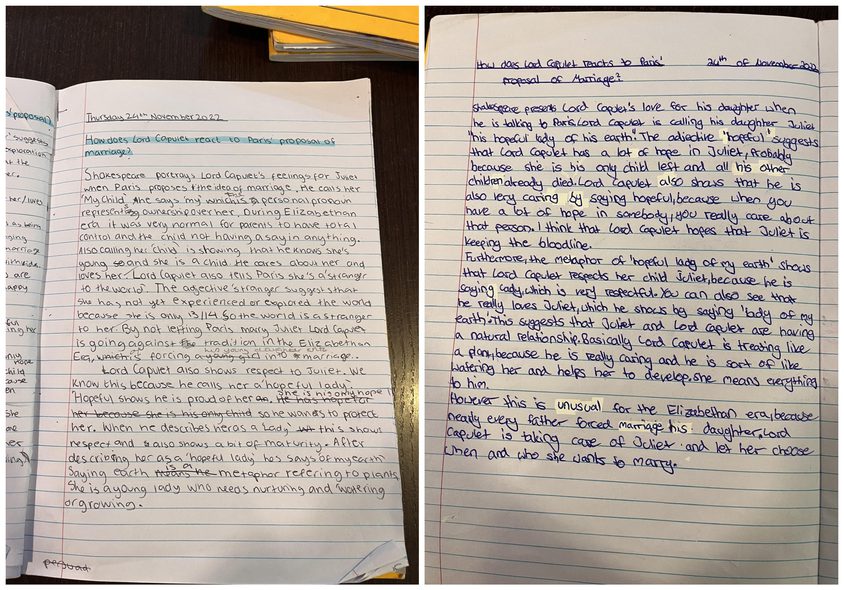 Thursday 24th November 2022
How does Lord Capulet react to Paris' proposal of
marriage?
Shakespeare portrays Lord Capulet's feelings for Juliet
when Paris proposes the idea of marriage. He calls her
'My child'. he says 'my' which is a personal pronoun
represents ownership over her. During Elizabethan
era it was very normal for parents to have total
control and the child not having a say in anything.
Also calling her 'Child' is showing that he knows she's
young, and she is a child. He cares about her and
loves her. Lord Capulet also tells Paris she's a 'stranger
to the world'. The adjective 'stranger' suggest that
she has not yet experienced or explored the world
because she is only 13/14 so the world is a stranger
to her. By not letting Paris marry Juliet Lord Capulet
is going against tradition in the Elizabethan
Era, forcing a marriage.
Lord Capulet also shows respect to Juliet. We
know this because he calls her a 'hopeful lady'.
she is his only hope
'Hopeful' shows he is proud of her
her because she is his only child so he wants to protect
her. When he describes her as a 'Lady' this shows
respect and also shows a bit of maturity. After
describing her as a 'hopeful lady' he says 'of my earth'
is a
Saying earth metaphor refering to plants.
She is a young lady who needs nurturing and 'watering
or growing.
persuad
proposal?
suggests
exploration
at the
her/lives
as being
marriage
are
appy
ful
only hope
his child
she
How does Lord Capulet reacts to Paris' 24th of November 2022
proposal of Marriage?
Shakespeare presents Lord Capulet's love for his daughter when
he is talking to Paris. Lord Capulet is calling his daughter Juliet
"his hopeful lady of his earth". The adjective "hopeful" suggests
that Lord Capulet has a lot of hope in Juliet, Probably
because she is his only child left and all his other
children already died. Lord Capulet also shows that he is
also very caring by saying hopeful, because when you
have a lot of hope in somebody, you really care about
that person. I think that Lord Capulet hopes that Juliet is
keeping the bloodline.
Furthermore, the metaphor of 'hopeful lady of my earth' shows
that Lord Capulet respects her child Juliet, because he is
saying Lady, which is very respectful. You can also see that
he really loves Juliet, which he shows by saying 'lady of my
earth'. This suggests that Juliet and Lord Capulet are having
a natural relationship. Basically Lord Capulet is treating like
a plant, because he is really caring and he is sort of like
watering her and helps her to develop. she means everything
to him.
However this is unusual for the Elizabethan era, because
nearly every father forced marriage his daughter, Lord
Capulet is taking case of Juliet and let her choose
when and who she wants to marry.